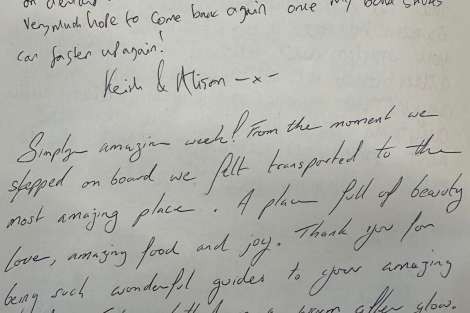 Very much hope to come back again once my board shorts
can fasten up again!
Keith & Alison -x-
Simply amazing week! From the moment we
stepped on board we felt transported to the
most amazing place. A place full of beauty
love, amazing food and joy. Thank you for
being such wonderful guides to your amazing
a warm after glow.